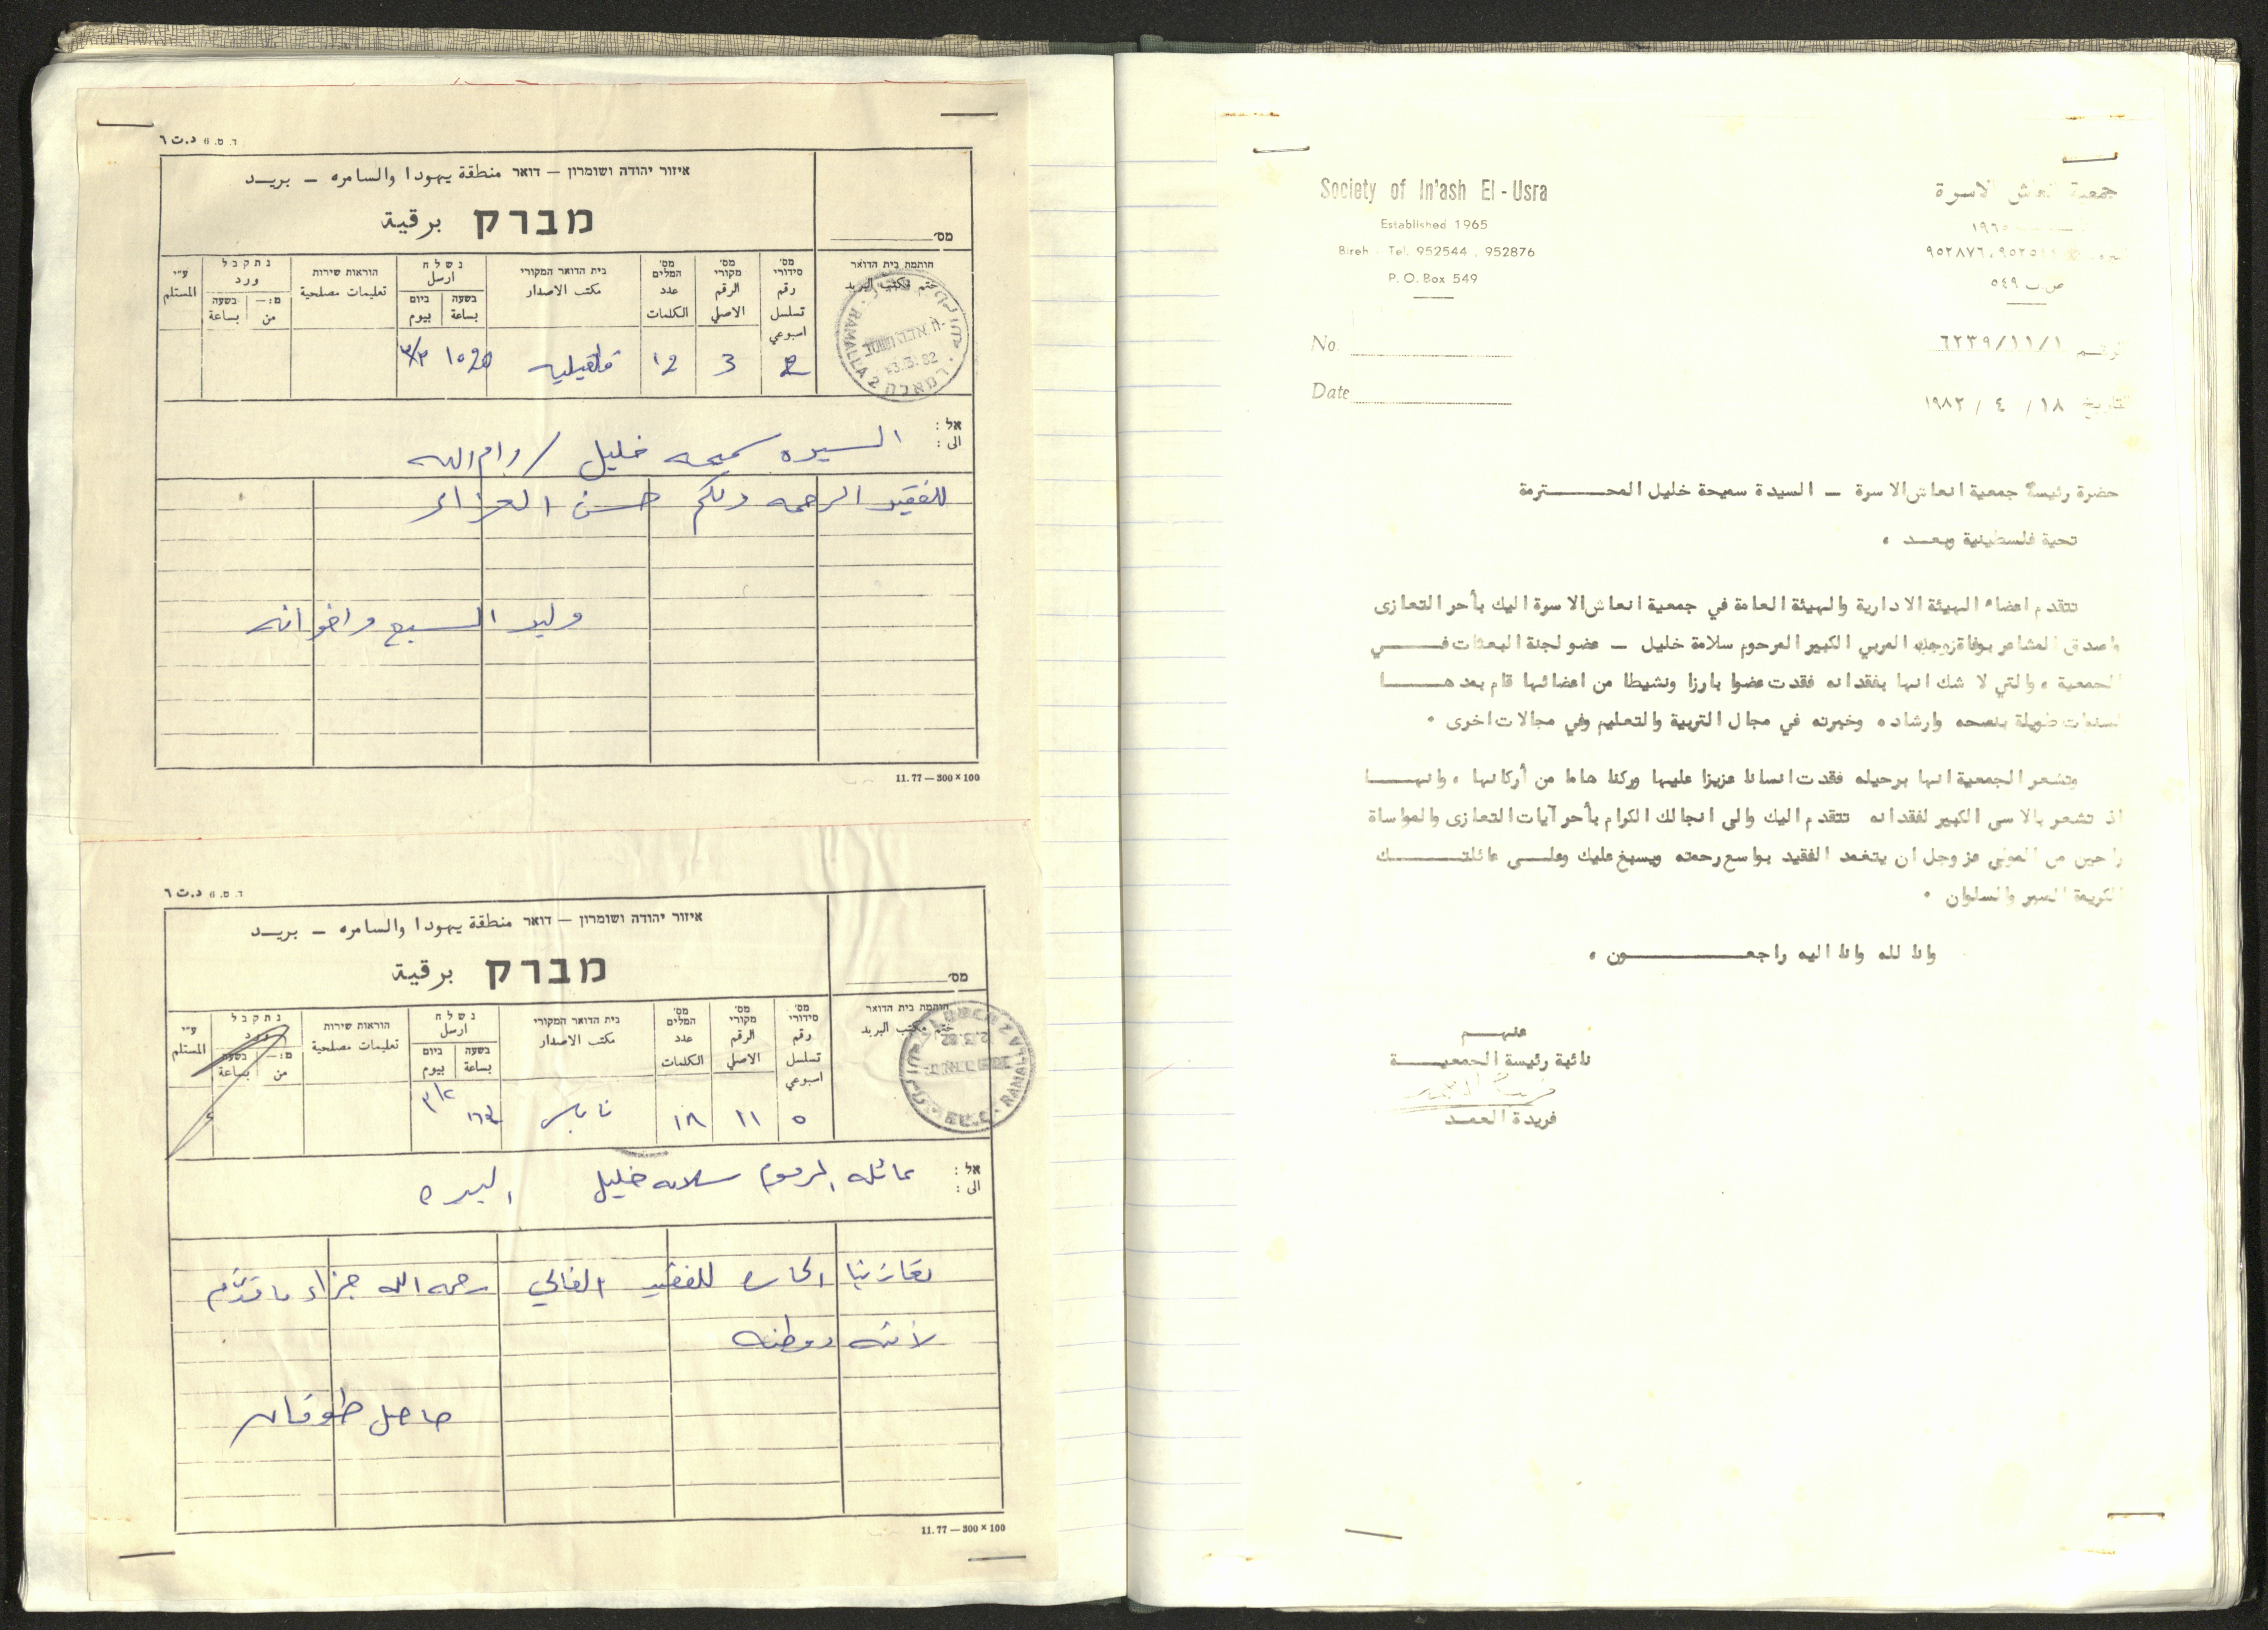 ד. מ. 11 د.ت ٦
איזור יהודה ושומרון – דואר منطقة يهودا والسامره – بريــد
מברק برقية
מס׳
נתקבל
ورد
נשלח
ارسل
ע״י
المستلم
בשעה
بساعة
מ: –
من
הוראות שירות
تعليمات مصلحية
ביום
بيوم
בשעה
بساعة
בית הדואר המקורי
مكتب الاصدار
מס׳ המלים
عدد الكلمات
מס׳ מקורי
الرقم الاصلي
מס׳ סידורי
رقم تسلسل اسبوعي
חותמת בית הדואר
ختم مكتب البريد
RAMALLA 2 רמאללה
3.3.82
٣/٣ قلقيليه 12 3 2
אל :
الى :
السيده سميحه خليل / رام الله
للفقيد الرحمه ولكم حسن العزاء
وليد السبع واخوانه
11. 77 — 300 × 100
ד. מ. 11 د.ت ٦
איזור יהודה ושומרון – דואר منطقة يهودا والسامره – بريــد
מברק برقية
מס׳
נתקבל
ورد
נשלח
ارسل
ע״י
المستلم
בשעה
بساعة
מ: –
من
הוראות שירות
تعليمات مصلحية
ביום
بيوم
בשעה
بساعة
בית הדואר המקורי
مكتب الاصدار
מס׳ המלים
عدد الكلمات
מס׳ מקורי
الرقم الاصلي
מס׳ סידורי
رقم تسلسل اسبوعي
חותמת בית הדואר
ختم مكتب البريد
٣/٢ نابلس ١٨ ١١ ٥
אל :
الى :
عائله المرحوم سلامه خليل البيره
تعازينا الحاره للفقيد الغالي رحمه الله جزاء ما قدّم
لأمته ووطنه
حافظ طوقان
11. 77 — 300 × 100
Society of In'ash El-Usra
Established 1965
Bireh - Tel. 952544 . 952876
P. O. Box 549
جمعية انعاش الاسرة
١٩٦٥
٩٥٢٨٧٦،٩٥٢٥٤٤
ص.ب ٥٤٩
No.
الرقم ٦٢٣٩/١١/١
Date
التاريخ ١٨ / ٤ / ١٩٨٢
حضرة رئيسة جمعية انعاش الاسرة – السيدة سميحة خليل المحــــترمة
تحية فلسطينية وبعــد ،
تتقدم اعضاء الهيئة الادارية والهيئة العامة في جمعية انعاش الاسرة اليك بأحر التعازى
واصدق المشاعر بوفاة زوجك العربي الكبير المرحوم سلامة خليل – عضو لجنة البعثات فــــي
الجمعية ، والتي لا شك انها بفقدانه فقدت عضوا بارزا ونشيطا من اعضائها قام بعدهــــا
لسنوات طويلة بنصحه وارشاده وخبرته في مجال التربية والتعليم وفي مجالات اخرى .
وتشعر الجمعية انها برحيله فقدت انسانا عزيزا عليها وركنا هاما من أركانها ، وانهــــا
اذ تشعر بالاسى الكبير لفقدانه تتقدم اليك والى انجالك الكرام بأحر آيات التعازى والمواساة
راجين من المولى عز وجل ان يتغمد الفقيد بواسع رحمته ويسبغ عليك وعلــى عائلتــــك
الكريمة الصبر والسلوان .
وانا لله وانا اليه راجعــــــون ،
عنهــم
نائبة رئيسة الجمعيــــة
فريدة العمــد